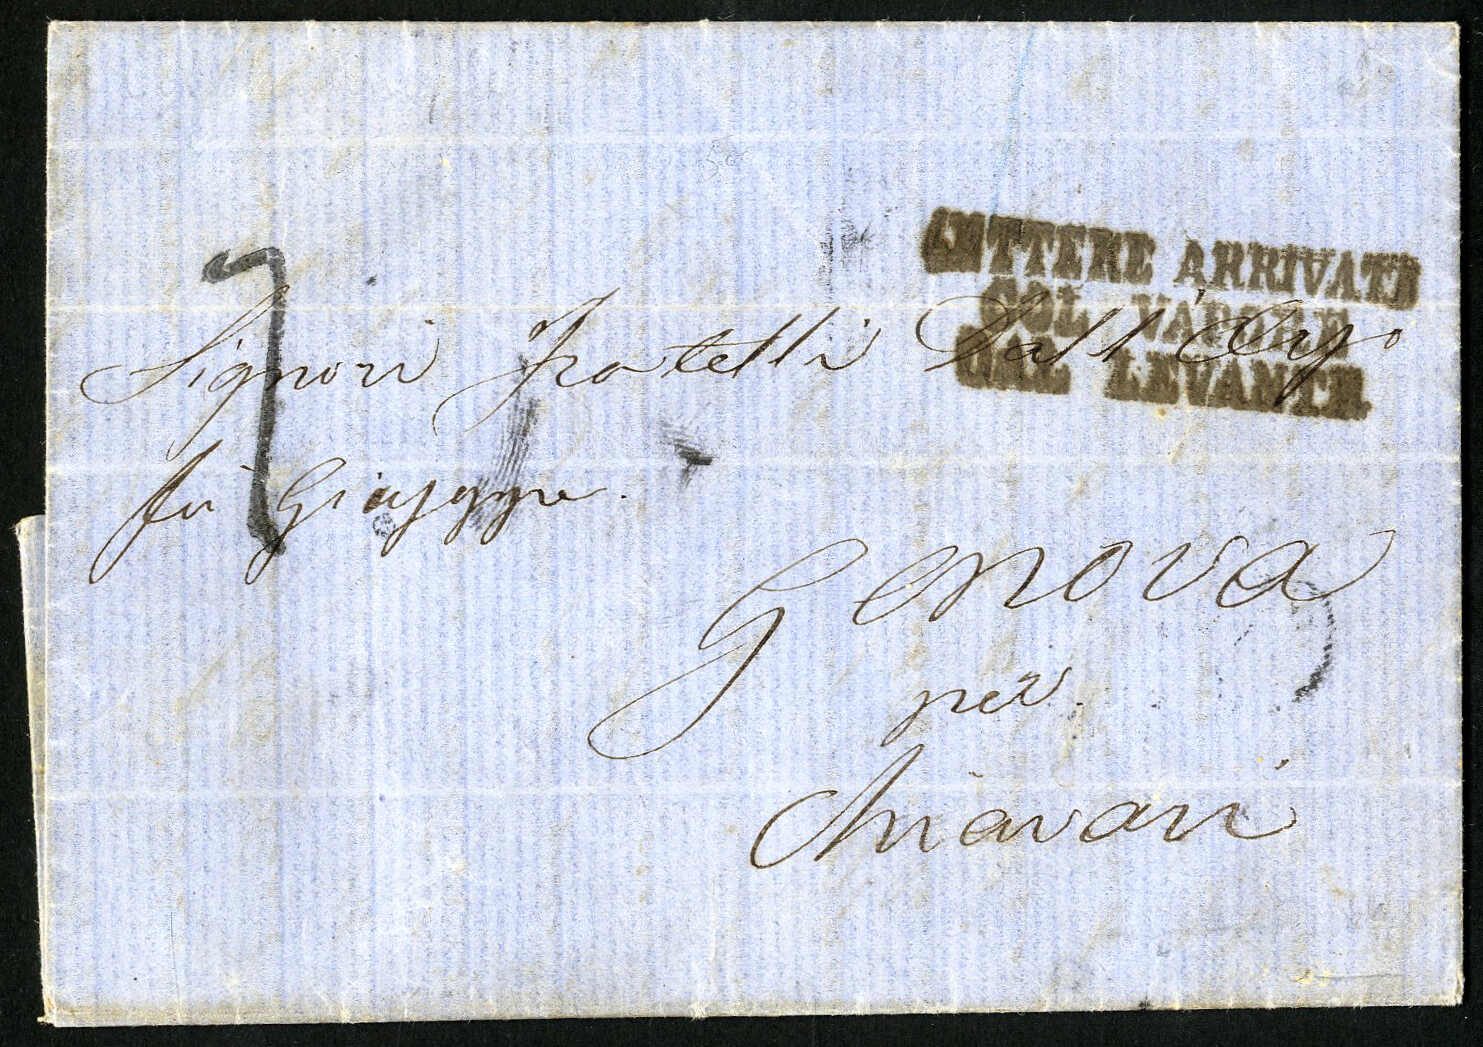 LETTERE ARRIVATE
COL VAPORE
DAL LEVANTE
7
Signori Fratelli Dall'Orso
fu Giuseppe.
Genova
per
Chiavari